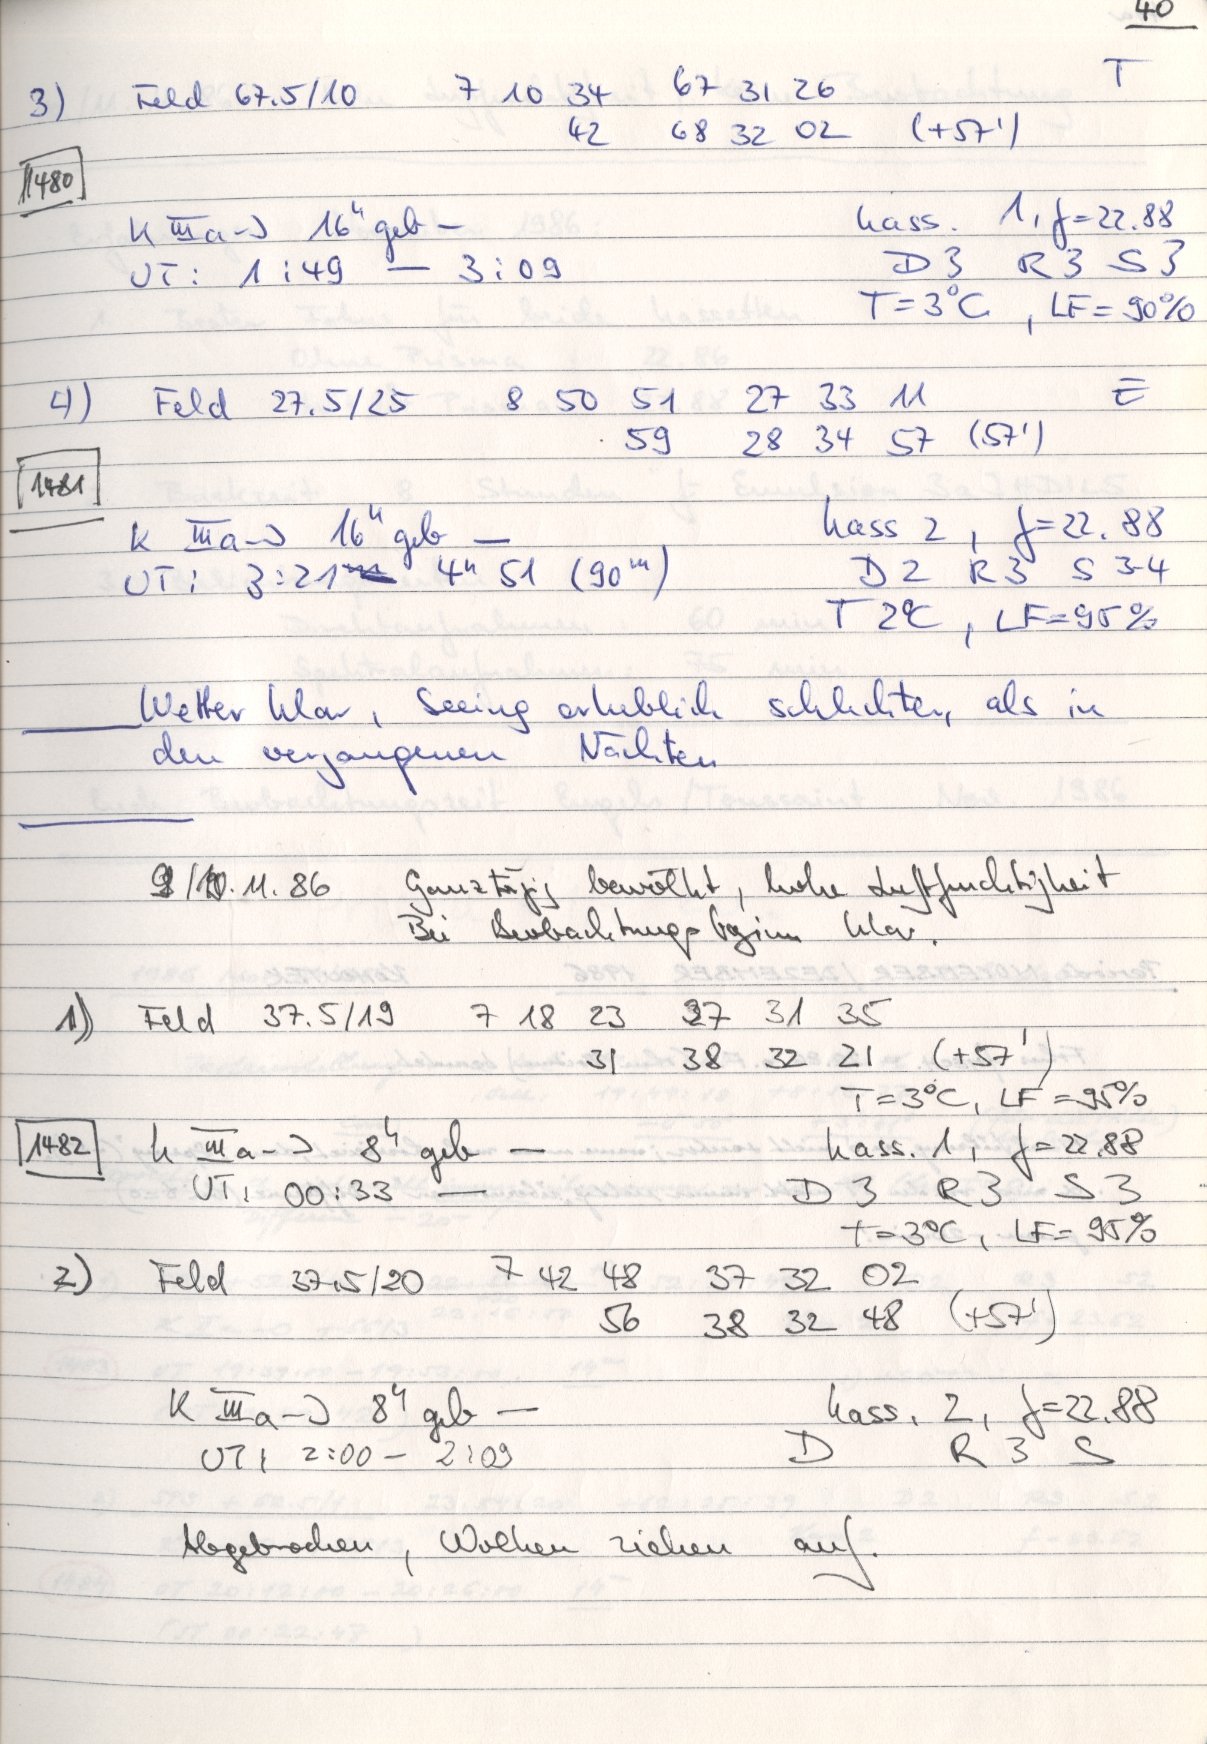 40
3) Feld 67.5/10 7 10 34 67 31 26 T
42 68 32 02 (+57')
1480
K IIIa-J 16ʰ geb —
Kass. 1, f=22.88
UT: 1:49 — 3:09
D3 R3 S3
T=3°C, LF=90%
4) Feld 27.5/25 8 50 51 27 33 11 E
59 28 34 57 (57')
1481
K IIIa-J 16ʰ geb —
Kass 2, f=22.88
UT: 3:21 4ʰ 51 (90ᵐ)
D2 R3 S 3-4
T 2°C, LF=95%
Wetter klar, Seeing erheblich schlechter, als in
den vergangenen Nächten
9/10.11.86 Ganztägig bewölkt, hohe Luftfeuchtigkeit
Bei Beobachtungsbeginn klar.
1) Feld 37.5/19 7 18 23 37 31 35
31 38 32 21 (+57')
T=3°C, LF=95%
1482 K IIIa-J 8ʰ geb — Kass. 1, f=22.88
UT: 00:33 — D3 R3 S3
T=3°C, LF=95%
2) Feld 37.5/20 7 42 48 37 32 02
56 38 32 48 (+57')
K IIIa-J 8ʰ geb — Kass. 2, f=22.88
UT: 2:00 – 2:09 D R3 S
Abgebrochen, Wolken ziehen auf.